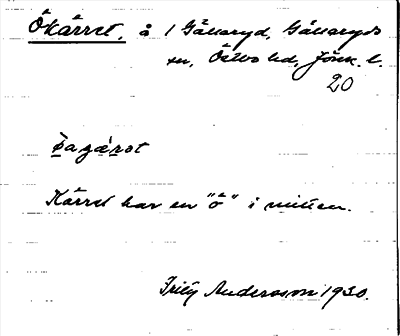 Ökärret, å 1 Gällaryd, Gällaryds
sn, Östbo hd, Jönk. l.
20
Kärret har en "ö" i mitten.
Frity Andersson 1930.